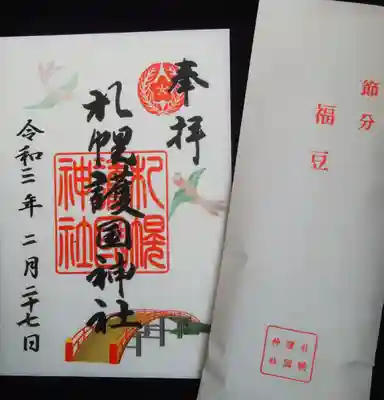 奉拝
札幌護国神社
令和三年二月二十七日
札幌
護国
神社
節分
福豆
札幌
護国
神社